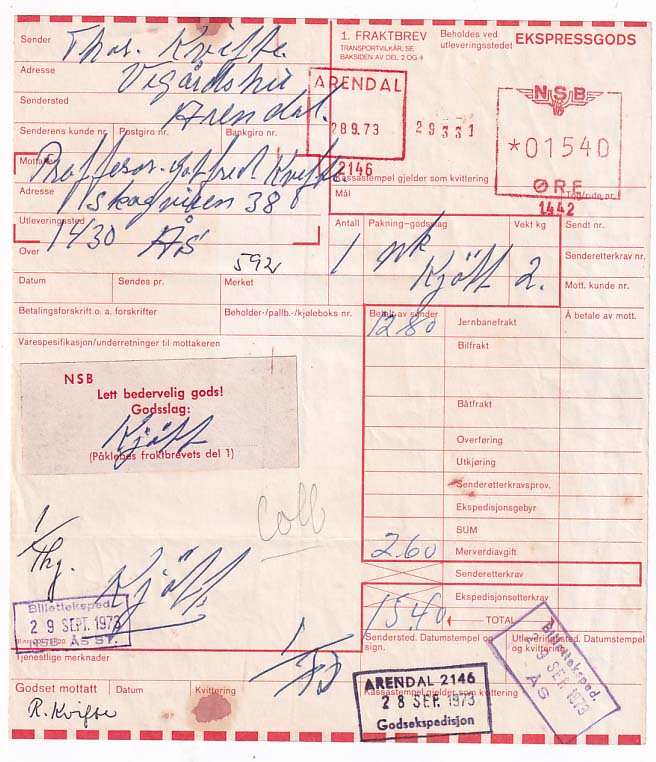 Sender Thor. Kvifte
1. FRAKTBREV
TRANSPORTVILKÅR, SE
BAKSIDEN AV DEL 2 OG 4
Beholdes ved
utleveringsstedet
EKSPRESSGODS
Adresse Vegårdshei
Sendersted Arendal.
ARENDAL
28.9.73
2146
29331
NSB
*01540
ØRE
1442
Senderens kunde nr. Postgiro nr. Bankgiro nr.
Kassastempel gjelder som kvittering
Mottaker Kvifte
Mål
Tog/rute nr.
Adresse 38
Utleveringssted 1430 Ås
Over
592
Antall Pakning-godsslag Vekt kg Sendt nr.
1 pk Kjøtt 2.
Senderetterkrav nr.
Mott. kunde nr.
Datum Sendes pr. Merket
Betalingsforskrift o. a. forskrifter Beholder-/pallb.-/kjøleboks nr.
Betalt av sender
Å betale av mott.
12 80 Jernbanefrakt
Varespesifikasjon/underretninger til mottakeren
Bilfrakt
NSB
Lett bedervelig gods!
Godsslag:
Kjøtt
(Påklebes fraktbrevets del 1)
Båtfrakt
Overføring
Utkjøring
Senderetterkravsprov.
Ekspedisjonsgebyr
SUM
2 60 Merverdiavgift
Senderetterkrav
Ekspedisjonsetterkrav
15 40 TOTAL
Coll
1/
Kjøtt
Billetteksped.
29 SEPT. 1973
NSB ÅS ST.
Tjenstlige merknader
Sendersted. Datumstempel og
sign.
Utleveringssted. Datumstempel
og kvittering
Billetteksped.
29 SEP. 1973
ÅS
Godset mottatt Datum Kvittering
Kassastempel gjelder som kvittering
R. Kvifte
ARENDAL 2146
28 SEP. 1973
Godsekspedisjon